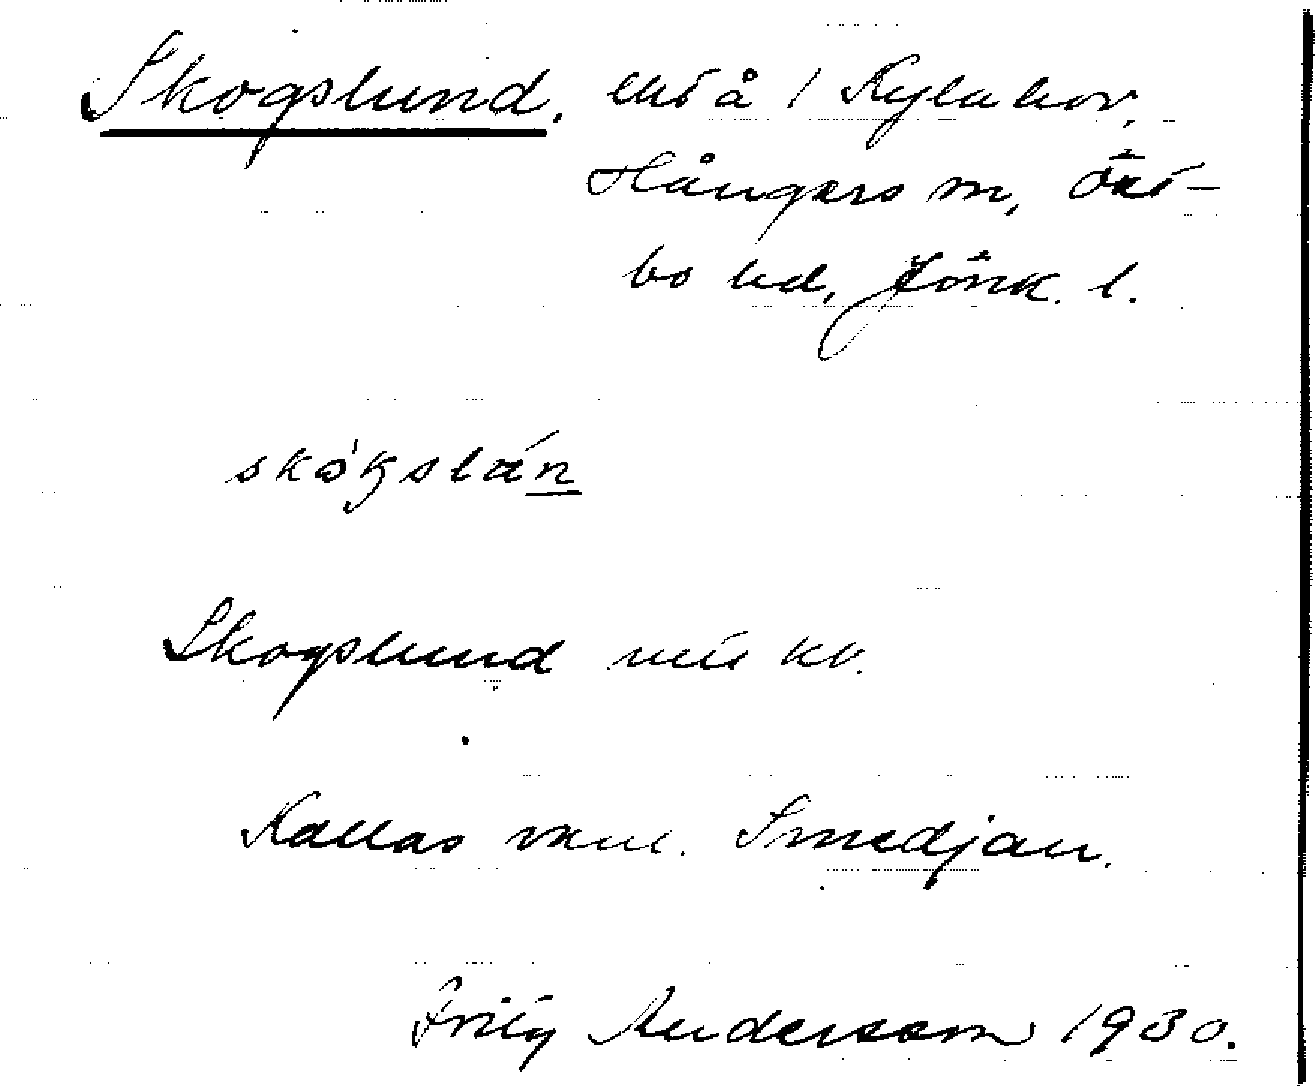 Skogslund, lht å 1 Kylahov,
Hångers sn, Öst-
bo hd, Jönk. l.
skógslán
Skogslund
Kallas vanl. Smedjan.
Fritz Andersson 1930.